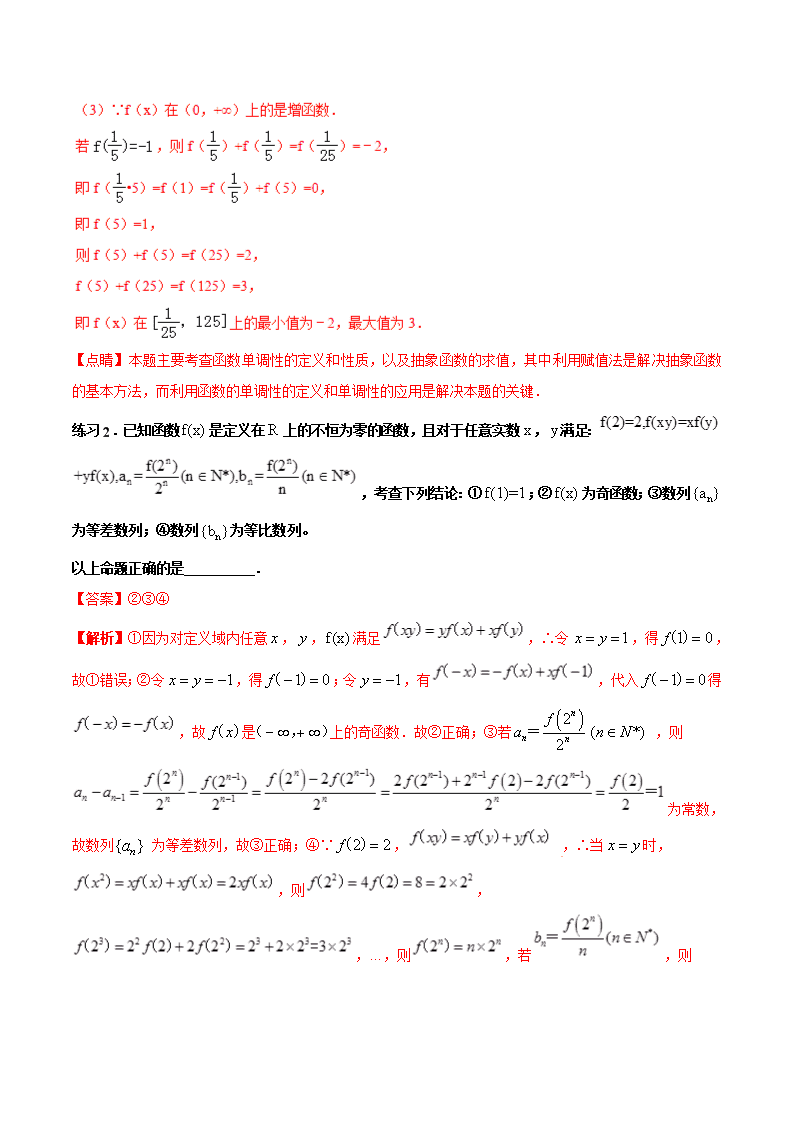 （3）∵f（x）在（0，+∞）上的是增函数．
若 f(1/5)=-1，则 f（1/5）+f（1/5）=f（1/25）=﹣2，
即 f（1/5•5）=f（1）=f（1/5）+f（5）=0，
即 f（5）=1，
则 f（5）+f（5）=f（25）=2，
f（5）+f（25）=f（125）=3，
即 f（x）在 [1/25，125] 上的最小值为﹣2，最大值为 3．
【点睛】本题主要考查函数单调性的定义和性质，以及抽象函数的求值，其中利用赋值法是解决抽象函数
的基本方法，而利用函数的单调性的定义和单调性的应用是解决本题的关键．
练习2．已知函数f(x) 是定义在 R 上的不恒为零的函数，且对于任意实数 x，y满足: f(2)=2,f(xy)=xf(y)
+yf(x),aₙ=f(2ⁿ)/2ⁿ(n∈N*),bₙ=f(2ⁿ)/n(n∈N*)，考查下列结论: ①f(1)=1; ②f(x) 为奇函数; ③数列{aₙ}
为等差数列; ④数列{bₙ}为等比数列。
以上命题正确的是__________．
【答案】②③④
【解析】①因为对定义域内任意 x，y，f(x)满足 f(xy)=yf(x)+xf(y)，∴令 x=y=1，得 f(1)=0，
故①错误; ②令 x=y=-1，得 f(-1)=0; 令 y=-1，有 f(-x)=-f(x)+xf(-1)，代入 f(-1)=0得
f(-x)=-f(x)，故 f(x)是(-∞,+∞)上的奇函数．故②正确; ③若aₙ=f(2ⁿ)/2ⁿ (n∈N*) ，则
aₙ-aₙ₋₁=f(2ⁿ)/2ⁿ-f(2ⁿ⁻¹)/2ⁿ⁻¹=(f(2ⁿ)-2f(2ⁿ⁻¹))/2ⁿ=(2f(2ⁿ⁻¹)+2ⁿ⁻¹f(2)-2f(2ⁿ⁻¹))/2ⁿ=f(2)/2=1为常数，
故数列{aₙ} 为等差数列，故③正确; ④∵ f(2)=2，f(xy)=xf(y)+yf(x)，∴当 x=y 时，
f(x²)=xf(x)+xf(x)=2xf(x)，则 f(2²)=4f(2)=8=2×2²，
f(2³)=2²f(2)+2f(2²)=2³+2×2³=3×2³，…，则 f(2ⁿ)=n×2ⁿ，若 bₙ=f(2ⁿ)/n(n∈N*)，则